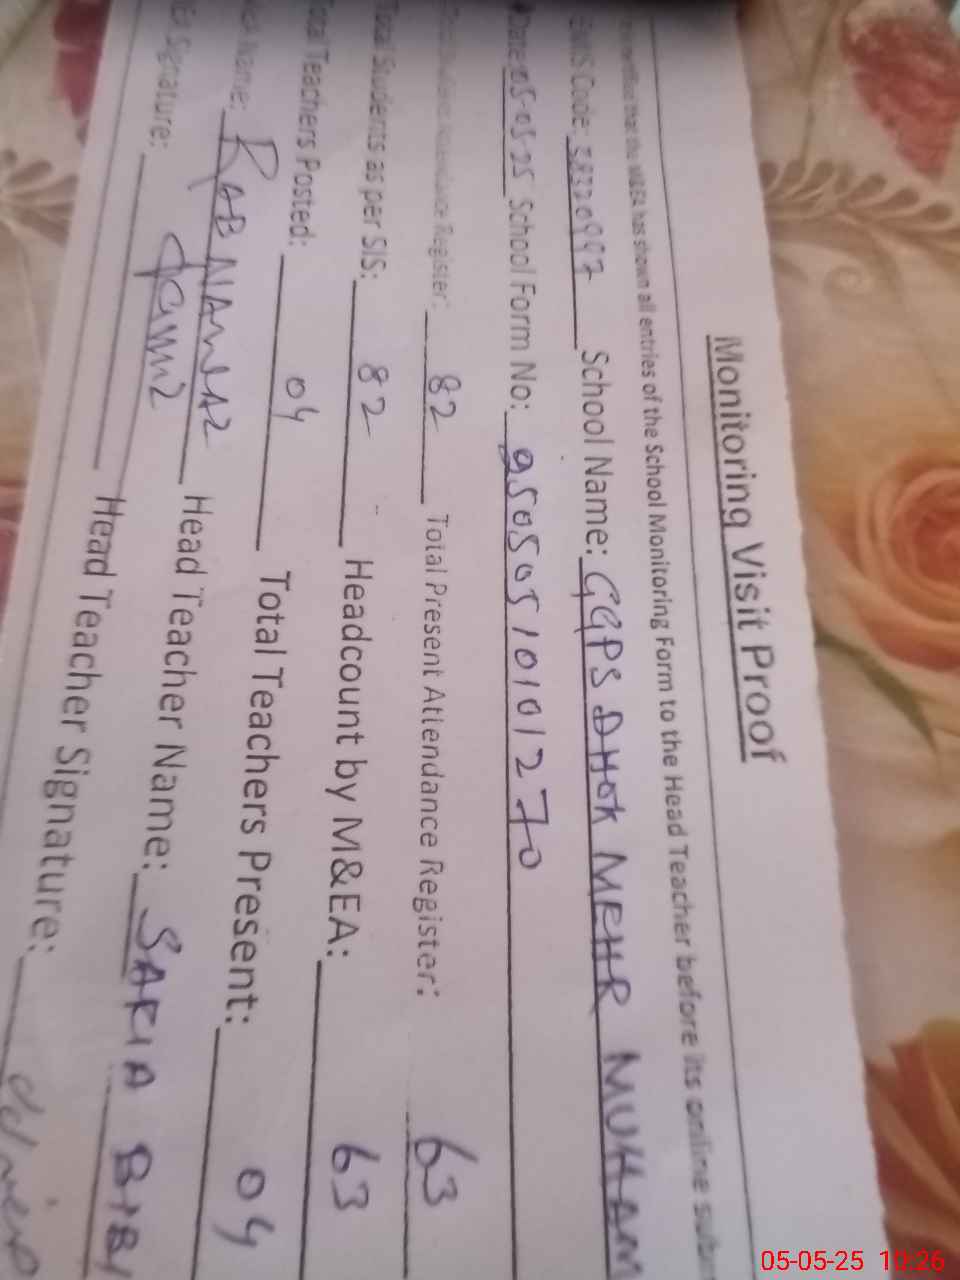 Monitoring Visit Proof
that the M&EA has shown all entries of the School Monitoring Form to the Head Teacher before its online
EMIS Code: School Name: GGPS DHOK MEHR MUHAM
Date: 05-05-25 School Form No: 95050510101270
Attendance Register: 82 Total Present Attendance Register: 63
Total Students as per SIS: 82 Headcount by M&EA: 63
Total Teachers Posted: 04 Total Teachers Present: 04
Name: RAB NAWAZ Head Teacher Name: SAKIA BIBI
Signature: Head Teacher Signature:
05-05-25 10:26